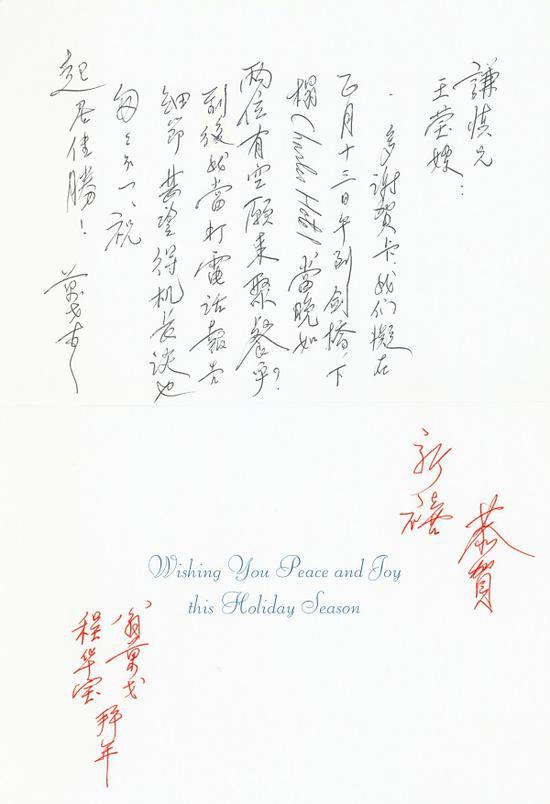 謙慎兄
王莹嫂：
多謝賀卡，我们擬在
正月十三日午到劍橋，下
榻Charles Hotel，當晚如
兩位有空願来聚餐乎？
到後我當打電話報告
細節，甚望得机長談也
匆匆不一，祝
起居佳勝！
萬戈
恭賀
新禧
Wishing You Peace and Joy
this Holiday Season
翁萬戈
程华宝 拜年